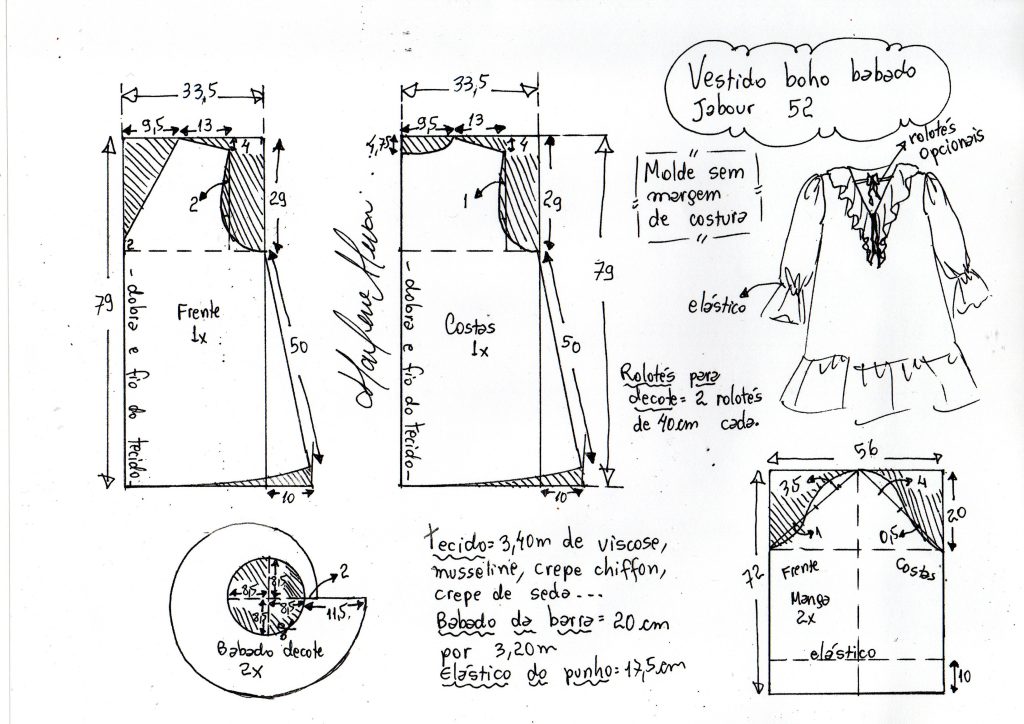 Vestido boho babado
Jabour 52
33,5
9,5
13
4
2
29
2
79
-dobra e fio do tecido-
Frente
1x
50
10
33,5
9,5
13
4,75
4
1
29
79
-dobra e fio do tecido-
Costas
1x
50
10
Molde sem
margem
de costura
rolotês
opcionais
elástico
Rolotês para
decote= 2 rolotês
de 40cm cada.
8,5
8,5
8,5
8,5
2
11,5
Babado decote
2x
tecido= 3,40m de viscose,
musseline, crepe chiffon,
crepe de seda...
Babado da barra= 20cm
por 3,20m
Elástico do punho= 17,5cm
56
3,5
4
20
1
0,5
72
Frente
Costas
Manga
2x
elástico
10